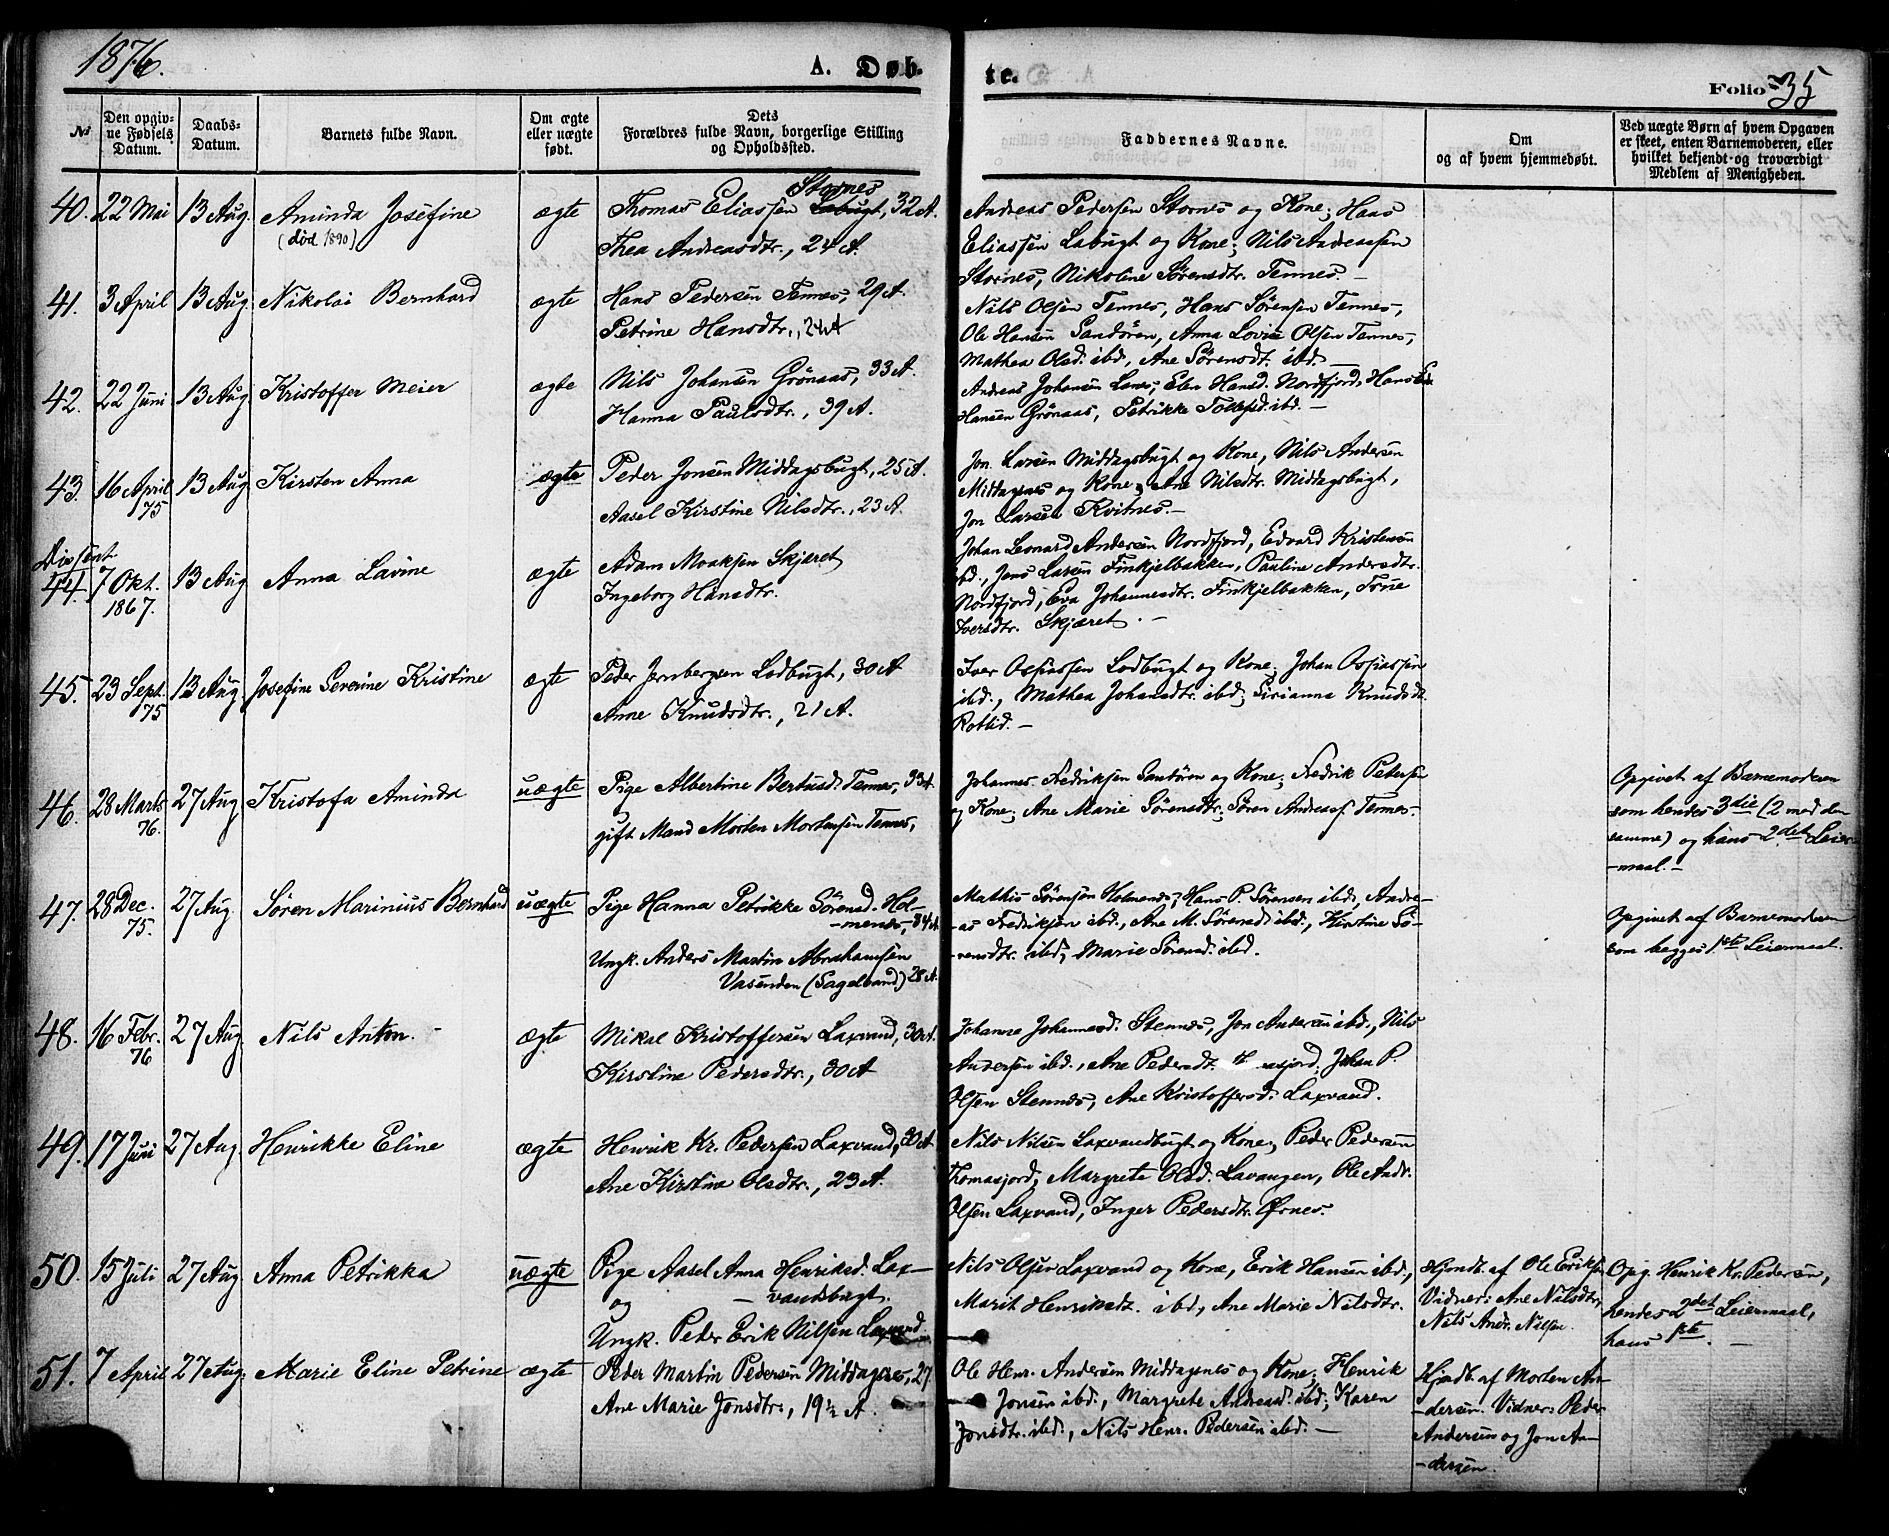 1876.
A. Døb-
te.
Folio 35
No
Den opgiv-
ne Fødsels
Datum.
Daabs-
Datum.
Barnets fulde Navn.
Om ægte
eller uægte
født.
Dets
Forældres fulde Navn, borgerlige Stilling
og Opholdssted.
Faddernes Navne.
Om
og af hvem hjemmedøbt.
Ved uægte Børn af hvem Opgaven
er skeet, enten Barnemoderen, eller
hvilket bekjendt og troværdigt
Medlem af Menigheden.
40. 22 Mai 13 Aug. Aminda Josefine ægte
(død 1890)
Stornes
Thomas Eliassen Labugt, 32 A.
Thea Andreasdtr., 24 A.
Andreas Pedersen Stornes og Kone; Hans
Eliassen Labugt og Kone; Nils Andreassen
Stornes, Nikoline Sørensdtr. Tennes.–
41. 3 April 13 Aug. Nikolai Bernhard ægte
Hans Pedersen Tennes, 29 A.
Petrine Hansdtr., 24 A
Nils Olsen Tennes, Hans Sørensen Tennes,
Ole Hansen Sandøren, Anna Lovise Olsen Tennes,
Mathea Olsd. ibd., Ane Sørensdt. ibd. –
42. 22 Juni 13 Aug. Kristoffer Meier ægte
Nils Johansen Grønaas, 33 A.
Hanna Paulsdtr., 39 A.
Andreas Johansen Lanes, Elen Hansd. Nordfjord, Hans
Hansen Grønaas, Petrikke Tollefsd. ibd. –
43. 16 April 13 Aug. Kirsten Anna ægte
75
Peder Jonsen Middagsbugt, 25 A.
Aasel Kirstine Nilsdtr., 23 A.
Jon Larsen Middagsbugt og Kone, Nils Andersen
Middagsnes og Kone, Ane Nilsdtr. Middagsbugt,
Jon Larsen Kvitnes.–
Dissent.
44. 7 Okt. 13 Aug. Anna Lavine ægte
1867.
Adam Moaksen Skjæret
Ingeborg Hansdtr.
Johan Leonard Andersen Nordfjord, Edvard Kristensen
ibd., Jens Larsen Finkjelbakken, Pauline Andersdtr.
Nordfjord, Eva Johannesdtr. Finkjelbakken,
Iversdtr. Skjæret. –
45. 23 Sept. 13 Aug. Josefine Severine Kristine ægte
75
Peder Jernbergsen Lodbugt, 30 A
Anne Knudsdtr., 21 A.
Iver Ossiassen Lodbugt og Kone; Johan Ossiassen
ibd., Mathea Johansdtr. ibd; Sirianna Knudsdt.
Rotlid. –
46. 28 Marts 27 Aug. Kristofa Aminda uægte
76.
Pige Albertine Bertusd. Tennes, 33 A.
gift Mand Morten Mortensen Tennes,
Johannes Fredriksen Sandøren og Kone; Fredrik Petersen
og Kone; Ane Marie Sørensdtr; Søren Andreass. Tennes.
Opgivet af Barnemoderen
som hendes 3die (2 med den
samme) og hans 2det Leier-
-maal.–
47. 28 Dec. 27 Aug. Søren Marinius Bernhard uægte
75.
Pige Hanna Petrikke Sørensd. Hol-
-menes, 34 A
Ungk. Anders Martin Abrahamsen
Vasenden (Sagelvand) 28 A.
Mathis Sørensen Holmenes; Hans P. Sørensen ibd, Andre-
-as Fredriksen ibd., Ane M. Sørensd. ibd., Kirstine Sø-
-rensdtr. ibd, Marie Sørensd. ibd.
Opgivet af Barnemoderen
som begges 1ste Leiermaal.
48. 16 Febr. 27 Aug. Nils Anton. – ægte
76
Mikal Kristoffersen Laxvand, 30 A.
Kirstine Pedersdtr., 30 A
Johanna Johannesd. Stennes, Jon Andersen ibd., Nils
Andersen ibd., Ane Pedersdt. Johan P.
Olsen Stennes, Ane Kristoffersd. Laxvand.
49. 17 Juni 27 Aug. Henrikke Eline ægte
Henrik Kr. Pedersen Laxvand, 30 A
Ane Kirstina Olsdtr., 23 A.
Nils Nilsen Laxvandbugt og Kone, Peder Pedersen
Thomasjord, Margrete Olsd. Lavangen, Ole Andr.
Olsen Laxvand, Inger Pedersdtr. Øvsnes.
50. 15 Juli 27 Aug. Anna Petrikka uægte
Pige Aasel Anna Henriksd. Lax-
– vandsbugt.
og
Ungk. Peder Erik Nilsen Laxvand
Nils Olsen Laxvand og Kone, Erik Hansen ibd.,
Marit Henriksdt. ibd, Ane Marie Nilsdtr.
Hjemdb. af Ole Eriksen
Vidner: Ane Nilsdtr,
Nils Andr. Nilsen.
Opg. Henrik Kr. Pedersen,
hendes 2det Leiermaal,
hans 1ste. –
51. 7 April 27 Aug. Marie Eline Petrine ægte
Peder Martin Pedersen Middagsnes, 27
Ane Marie Jonsdtr., 19 ½ A.
Ole Henr. Andersen Middagsnes og Kone; Henrik
Jonsen ibd., Margrete Andreasd. ibd; Karen
Jonsdtr. ibd., Nils Henr. Pedersen ibd. –
Hjemdb. af Morten An-
-dersen. Vidner: Peder
Andersen og Jon An-
-dersen.